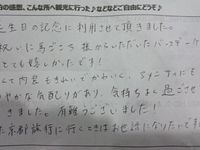 の感想、こんな所へ観光に行った♪などなどご自由にどうぞ
生日の記念に利用させて頂きました。
祝いに馬ごころ様からいただいたバースデーケ
とても嬉しかったです！
して内容もきれいでかわいく、
やかな気配りがあり、気持ちよく過ごさせ
きました。有難うございました！
た京都旅行に行くときはお世話になりたいです